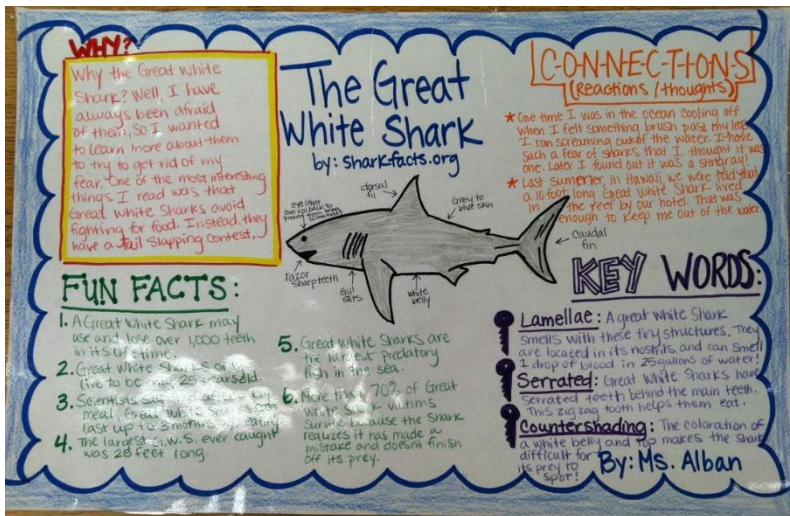 WHY?
Why the Great White
Shark? Well, I have
always been afraid
of them, so I wanted
to learn more about them
to try to get rid of my
fear. One of the most interesting
things I read was that
Great White Sharks avoid
fighting for food. Instead, they
have a tail slapping contest.
The Great
White Shark
by: sharkfacts.org
C-O-N-N-E-C-T-I-O-N-S
(Reactions/thoughts)
* One time I was in the ocean cooling off
when I felt something brush past my leg.
I ran screaming out of the water. I have
such a fear of sharks that I thought it was
one. Later I found out it was a stingray!
* Last summer, in Hawaii, we were told that
a 10 foot long Great White Shark lived
in the reef by our hotel. That was
enough to keep me out of the water
eye that
can roll back to
dorsal
fin
Grey to
blue skin
Caudal
fin
razor
sharp teeth
Gill
slits
White
belly
FUN FACTS:
1. A Great White Shark may
use and lose over 1,000 teeth
in its lifetime.
2. Great White Sharks only
live to be 25 years old.
3. Scientists say
meal, Great White
last up to 3 months eating
4. The largest G.W.S. ever caught
was 20 feet long.
5. Great White Sharks are
the largest predatory
fish in the sea.
6. More than 70% of Great
White Shark victims
survive because the shark
realizes it has made a
mistake and doesn't finish
off its prey.
KEY WORDS:
Lamellae: A great White Shark
smells with these tiny structures. They
are located in its nostrils and can smell
1 drop of blood in 25 gallons of water!
Serrated: Great White Sharks have
serrated teeth behind the main teeth.
This zig zag tooth helps them eat.
Countershading: The coloration of
a white belly and top makes the shark
difficult for
its prey to
spot!
By: Ms. Alban